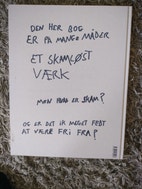 DEN HER BOG
ER PÅ MANGE MÅDER
ET SKAMLØST
VÆRK
MON HVAD ER SKAM?
OG ER DET IK MEGET FEDT
AT VÆRE FRI FRA?